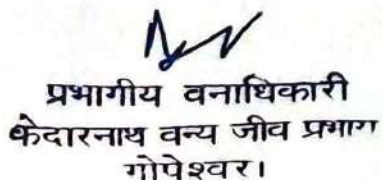 प्रभागीय वनाधिकारी
केदारनाथ वन्य जीव प्रभाग
गोपेश्वर।